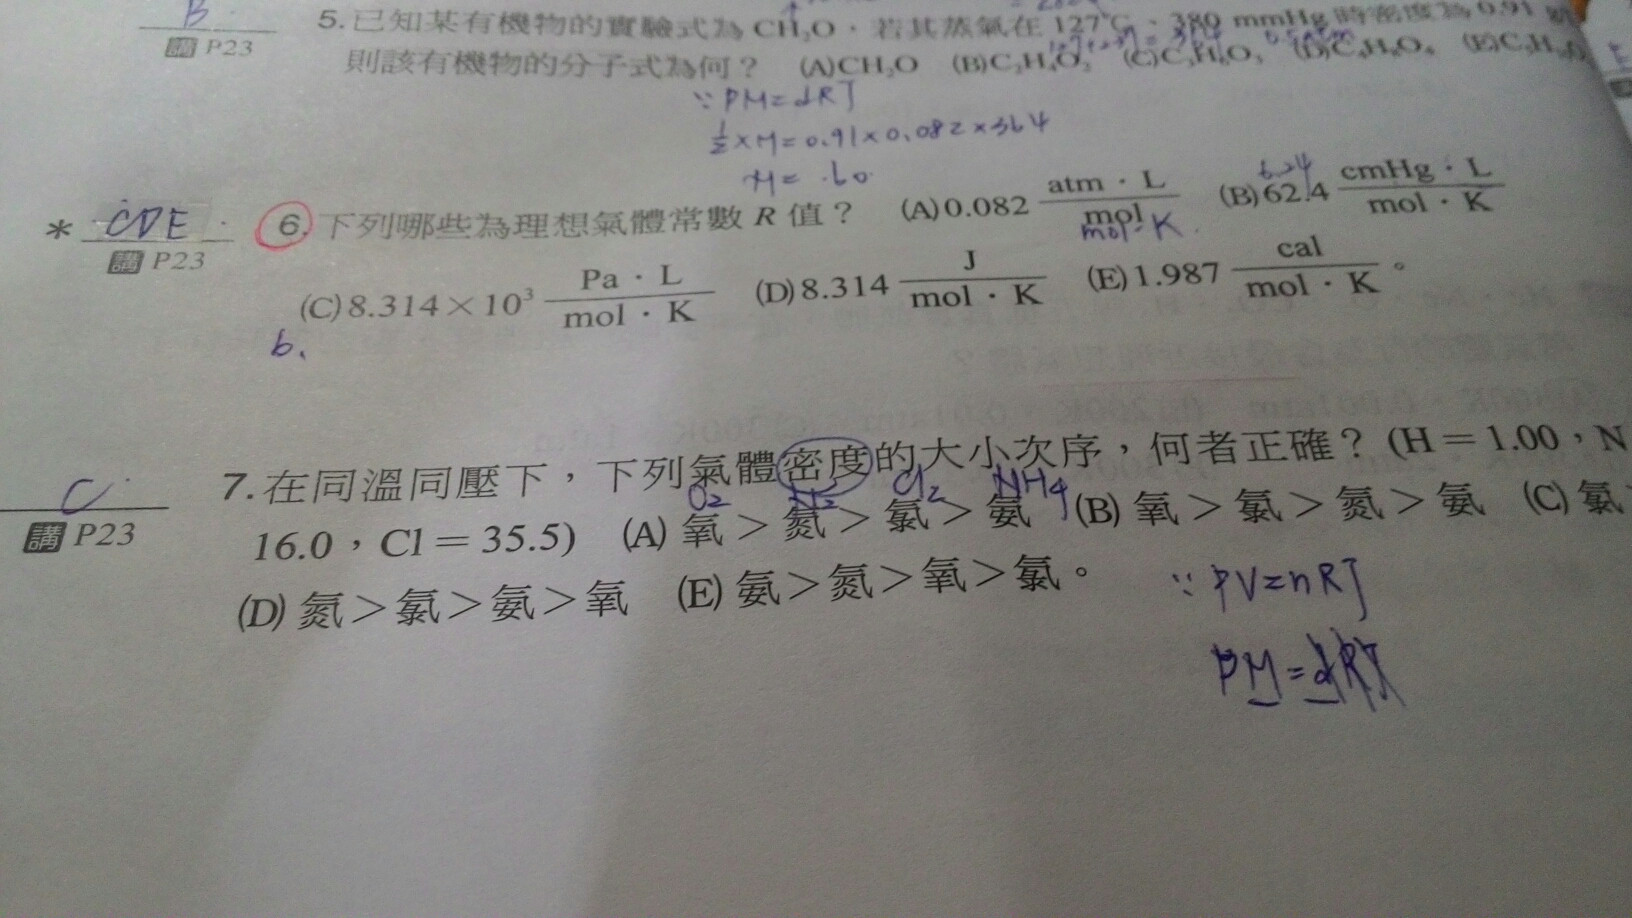 B
5.已知某有機物的實驗式為 CH₂O,若其蒸氣在 127℃、380 mmHg 時密度為 0.91
講 P23
則該有機物的分子式為何? (A)CH₂O (B)C₂H₄O₂ (C)C₃H₆O₃
∵ PM=dRT
½×M=0.91×0.082×364
M= 60
* CDE 6.下列哪些為理想氣體常數 R 值? (A)0.082 atm · L / mol (B)62.4 cmHg · L / mol · K
mol·K 6.24
講 P23
(C)8.314×10³ Pa · L / mol · K (D)8.314 J / mol · K (E)1.987 cal / mol · K 。
b.
C 7.在同溫同壓下,下列氣體密度的大小次序,何者正確? (H=1.00,N
O₂ N₂ Cl₂ NH₄
講 P23
16.0,Cl=35.5) (A) 氧>氮>氯>氨 (B) 氧>氯>氮>氨 (C) 氯
(D) 氮>氯>氨>氧 (E) 氨>氮>氧>氯。
∵ PV=nRT
PM=dRT